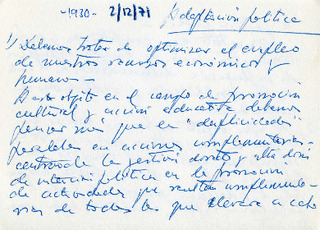 -1930- 2/12/71 Adaptación política
1) Debemos tratar de optimizar el empleo
de nuestros recursos económicos y
humanos -
A este objeto en el campo de promoción
cultural y acción educativa debemos
pensar más que en "duplicidades"
paralelas en acciones complementarias.
centrada la gestión directa y alta dosis
de intención política en la promoción
de actividades que resultan complementa-
rias de todas las que llevará a cabo